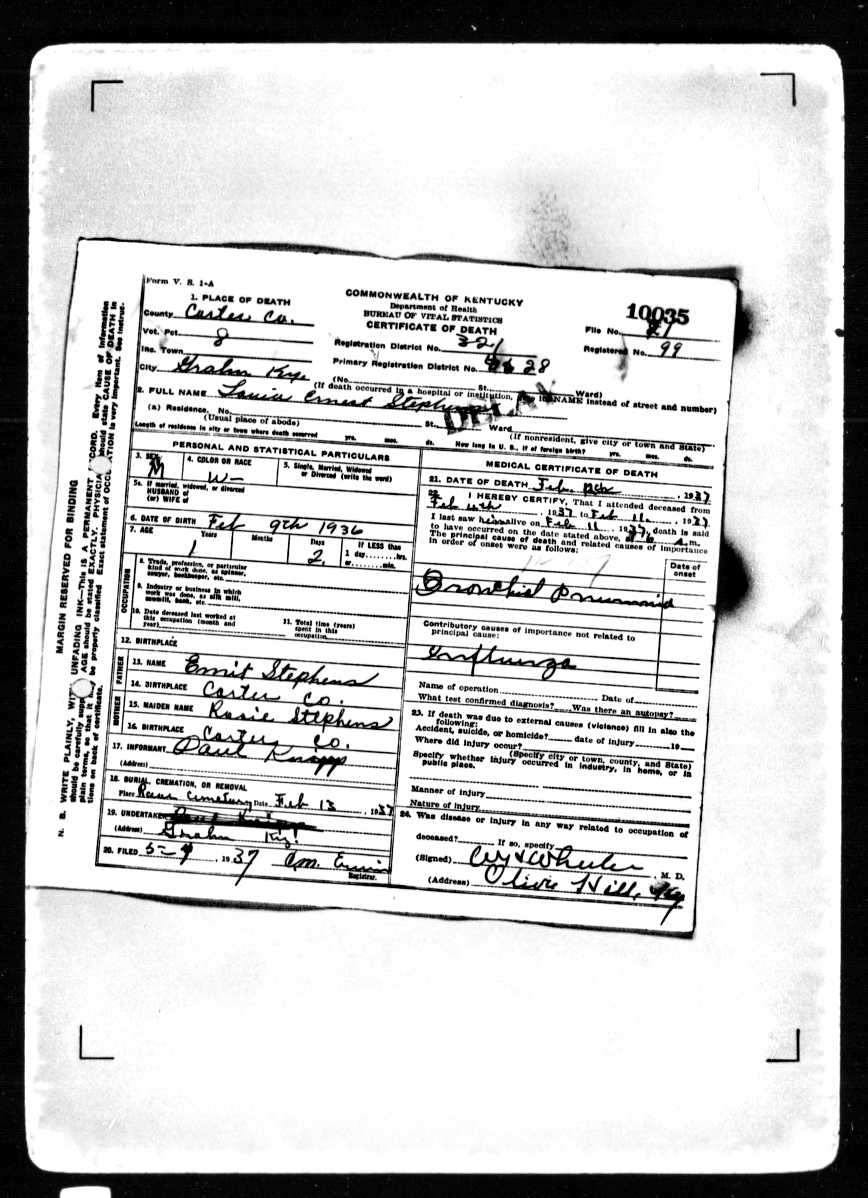 Form V. S. 1-A
COMMONWEALTH OF KENTUCKY
Department of Health
BUREAU OF VITAL STATISTICS
CERTIFICATE OF DEATH
10035
File No. 21
Registered No. 99
1. PLACE OF DEATH
County Carter Co.
Vot. Pct. 8
Inc. Town
City Grahn Ky.
Registration District No. 321
Primary Registration District No. 28
(No. St. Ward)
(If death occurred in a hospital or institution, give its NAME instead of street and number)
2. FULL NAME Ernest Stephens
DELAY
(a) Residence. No. St. Ward
(Usual place of abode)
(If nonresident, give city or town and State)
Length of residence in city or town where death occurred yrs. mos. ds. How long in U. S., if of foreign birth? yrs. mos. ds.
PERSONAL AND STATISTICAL PARTICULARS
3. SEX M
4. COLOR OR RACE W
5. Single, Married, Widowed
or Divorced (write the word)
5a. If married, widowed, or divorced
HUSBAND of
(or) WIFE of
6. DATE OF BIRTH Feb 9th 1936
7. AGE Years Months Days If LESS than
1 2 1 day hrs.
or min.
OCCUPATION
8. Trade, profession, or particular
kind of work done, as spinner,
sawyer, bookkeeper, etc.
9. Industry or business in which
work was done, as silk mill,
sawmill, bank, etc.
10. Date deceased last worked at
this occupation (month and
year)
11. Total time (years)
spent in this
occupation
12. BIRTHPLACE
FATHER
13. NAME Emit Stephens
14. BIRTHPLACE Carter Co.
MOTHER
15. MAIDEN NAME Rosie Stephens
16. BIRTHPLACE Carter Co.
17. INFORMANT Paul Knipp
(Address)
18. BURIAL, CREMATION, OR REMOVAL
Place cemetary Date Feb 13, 1937
19. UNDERTAKER
(Address) Grahn Ky.
20. FILED 5-4 1937
Registrar.
MEDICAL CERTIFICATE OF DEATH
21. DATE OF DEATH Feb. 12th, 1937
22. I HEREBY CERTIFY, That I attended deceased from
Feb 4th, 1937 to Feb 11, 1937
I last saw him alive on Feb 11, 1937, death is said
to have occurred on the date stated above, at 6 a.m.
The principal cause of death and related causes of importance
in order of onset were as follows:
Date of
onset
Bronchial Pneumonia
Contributory causes of importance not related to
principal cause:
Influenza
Name of operation Date of
What test confirmed diagnosis? Was there an autopsy?
23. If death was due to external causes (violence) fill in also the
following:
Accident, suicide, or homicide? date of injury 19
Where did injury occur?
(Specify city or town, county, and State)
Specify whether injury occurred in industry, in home, or in
public place.
Manner of injury
Nature of injury
24. Was disease or injury in any way related to occupation of
deceased? If so, specify
(Signed) Wheeler, M. D.
(Address) Olive Hill, Ky
MARGIN RESERVED FOR BINDING
N. B. WRITE PLAINLY, WITH UNFADING INK—THIS IS A PERMANENT RECORD. Every item of information
should be carefully supplied. AGE should be stated EXACTLY. PHYSICIANS should state CAUSE OF DEATH in
plain terms, so that it may be properly classified. Exact statement of OCCUPATION is very important. See instruc-
tions on back of certificate.